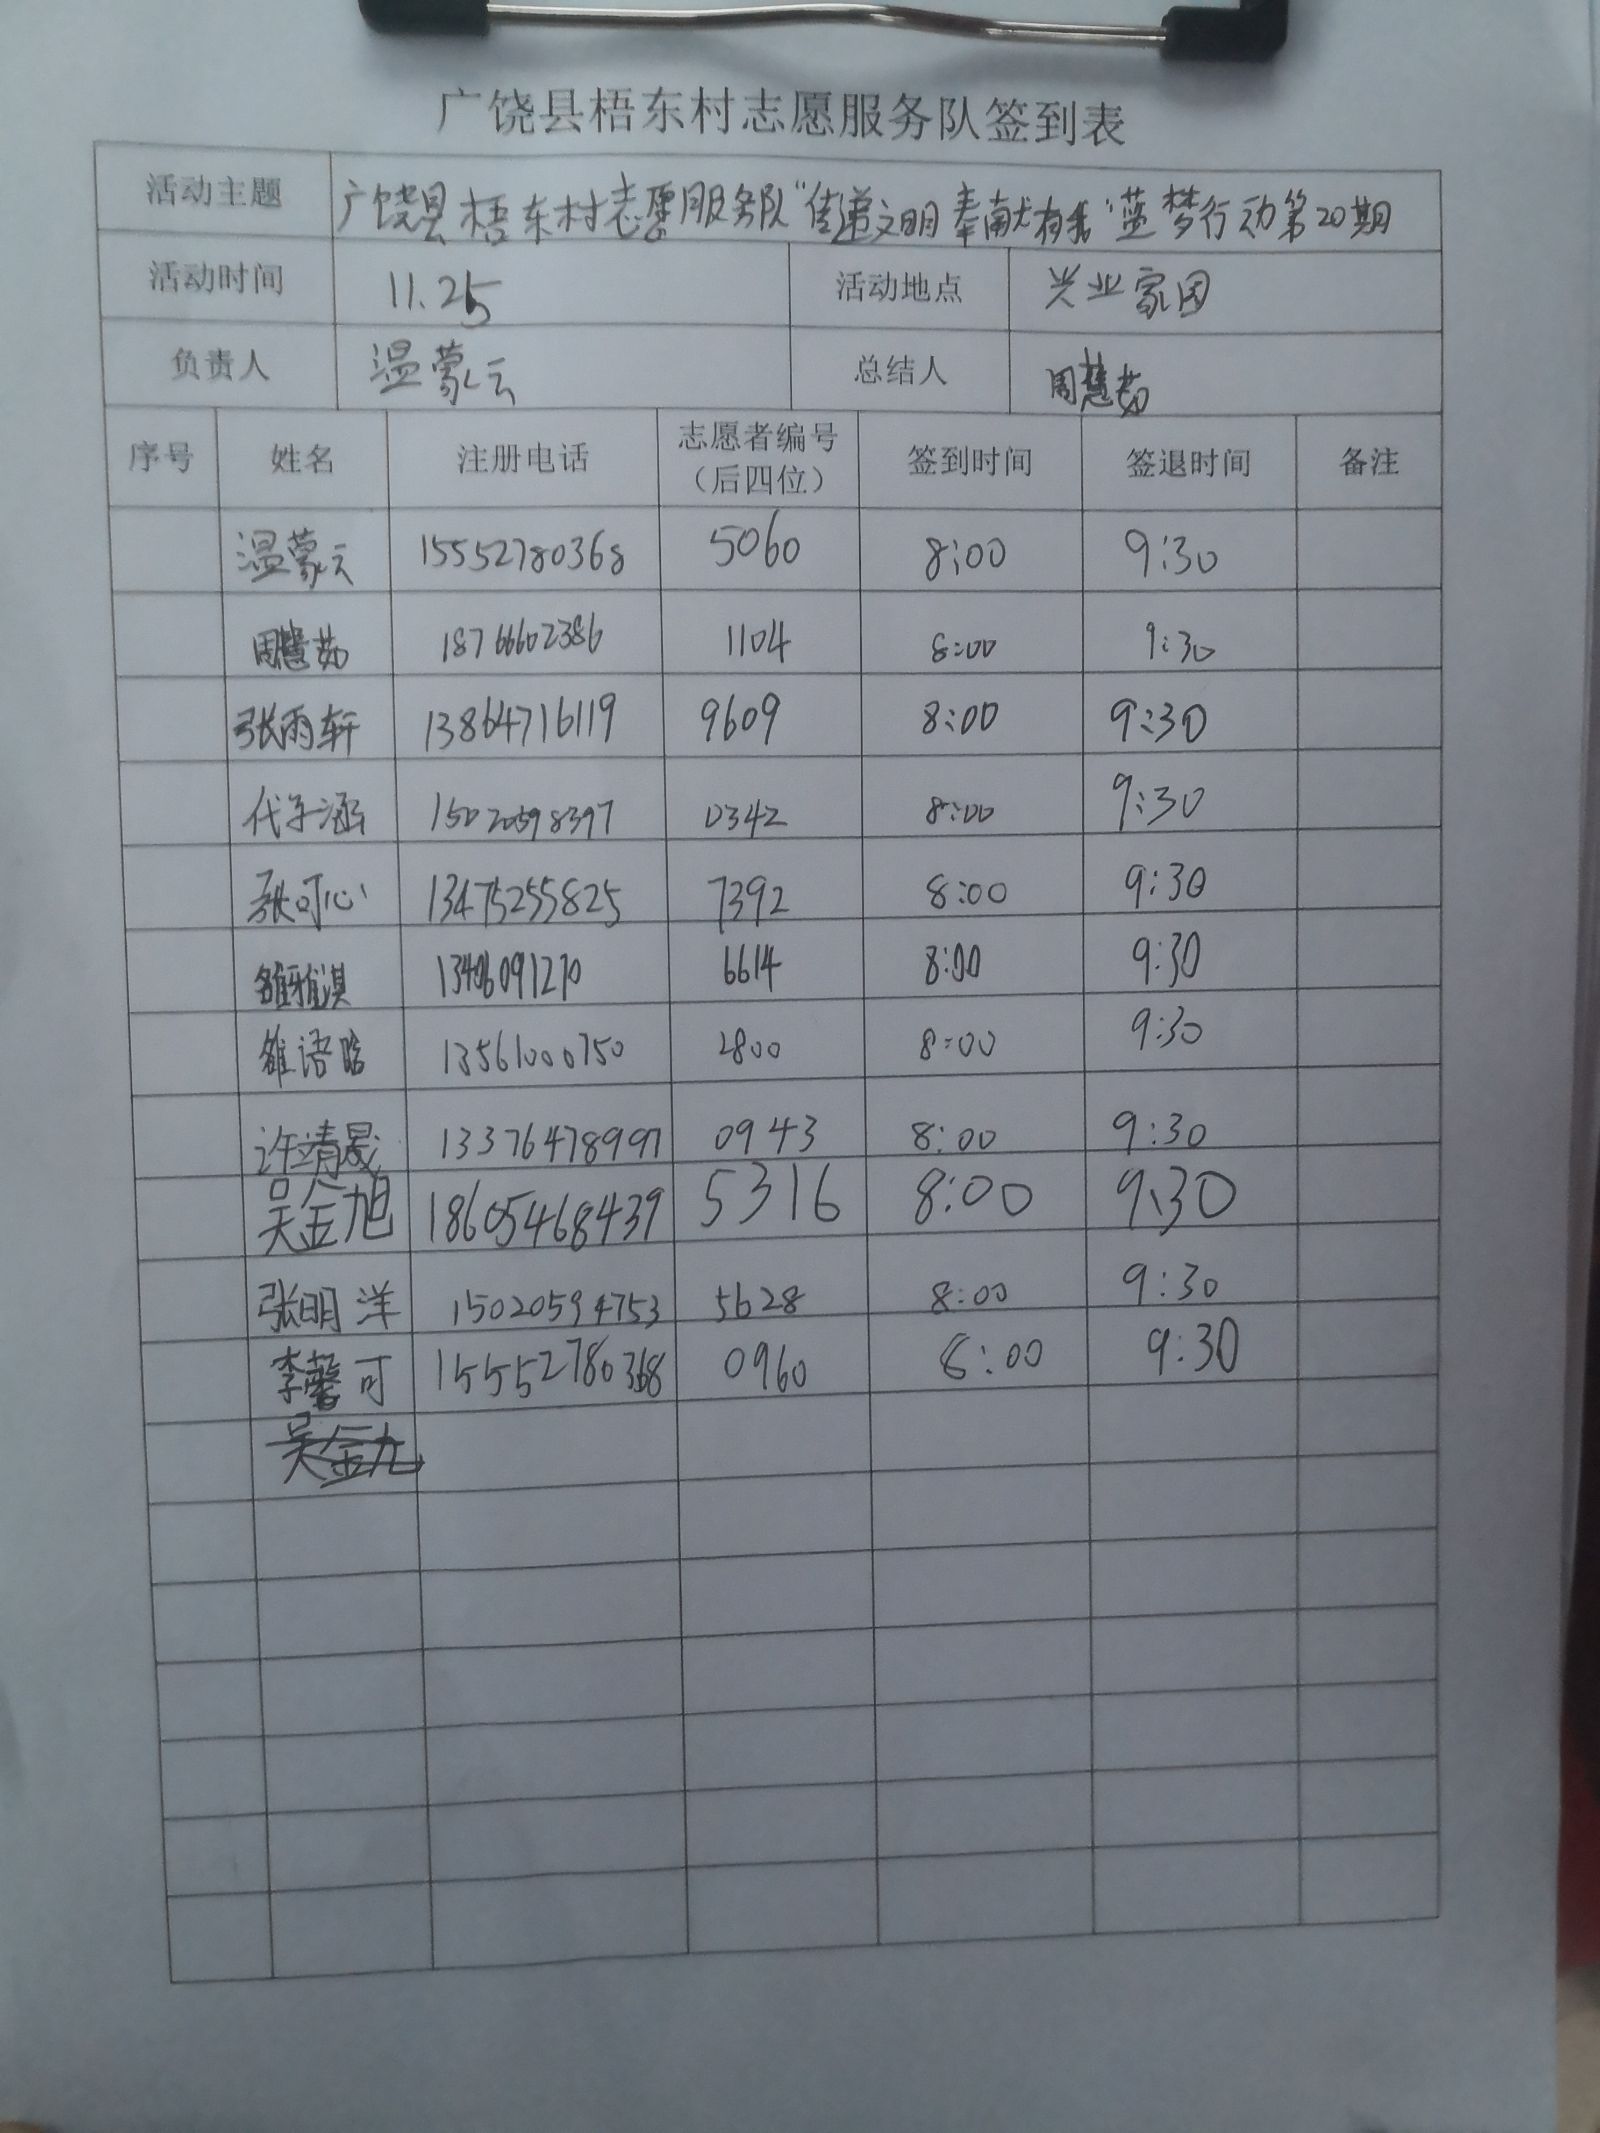 广饶县梧东村志愿服务队签到表
活动主题 广饶县梧东村志愿服务队"传递文明奉献有我"蓝梦行动第20期
活动时间 11.25 活动地点 兴业家园
负责人 温蒙云 总结人 周慧茹
序号 姓名 注册电话 志愿者编号（后四位） 签到时间 签退时间 备注
温蒙云 15552780368 5060 8:00 9:30
周慧茹 18766602386 1104 8:00 9:30
张雨轩 13864716119 9609 8:00 9:30
代子涵 15020598397 0342 8:00 9:30
张可心 13475255825 7392 8:00 9:30
雒雅淇 13406091270 6614 8:00 9:30
雒语晗 13561000750 2800 8:00 9:30
许靖晟 13376478997 0943 8:00 9:30
吴金旭 18605468439 5316 8:00 9:30
张明洋 15020594753 5628 8:00 9:30
李馨可 15552780368 0960 8:00 9:30
吴金九